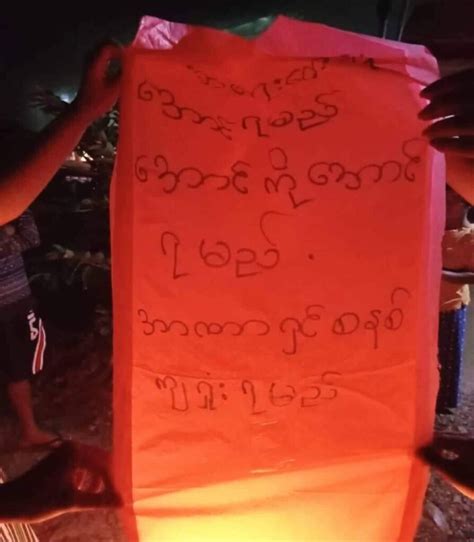 အရေးတော်ပုံ
အောင်ရမည်
အောင်ကိုအောင်
ရမည်.
အာဏာရှင်စနစ်
ကျရှုံးရမည်